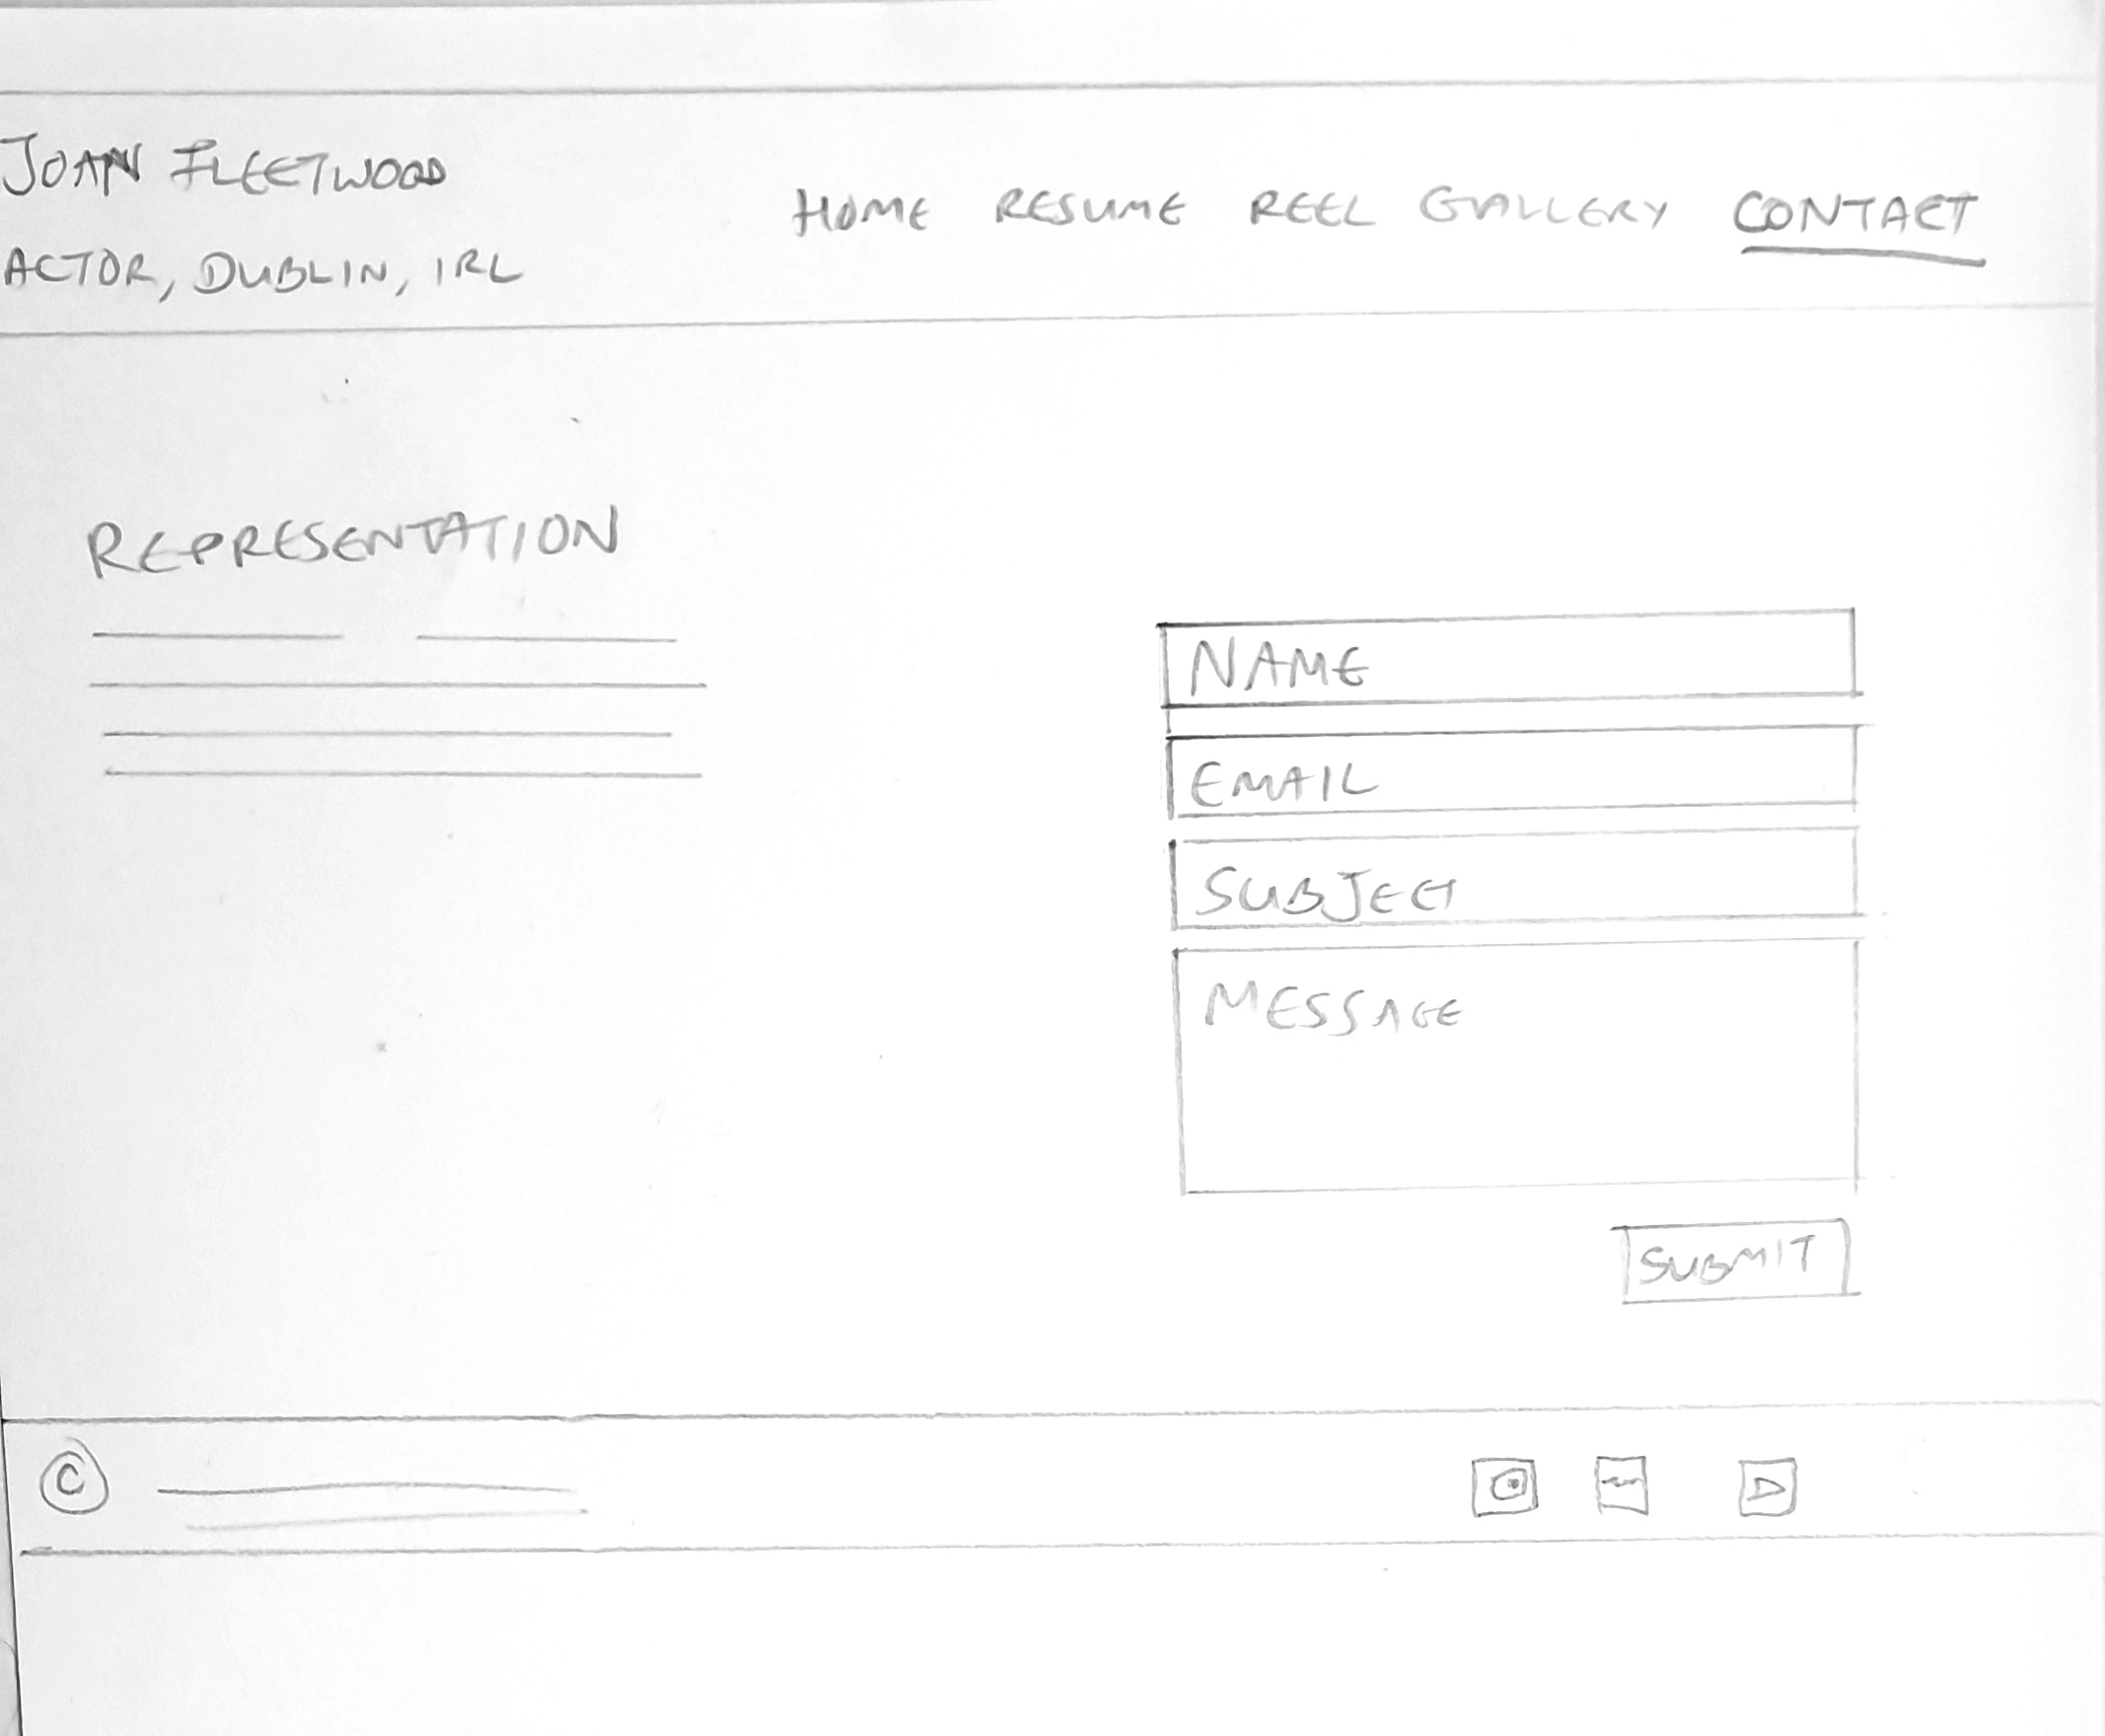 JOAN FLEETWOOD
ACTOR, DUBLIN, IRL
HOME RESUME REEL GALLERY CONTACT
REPRESENTATION
NAME
EMAIL
SUBJECT
MESSAGE
SUBMIT
©